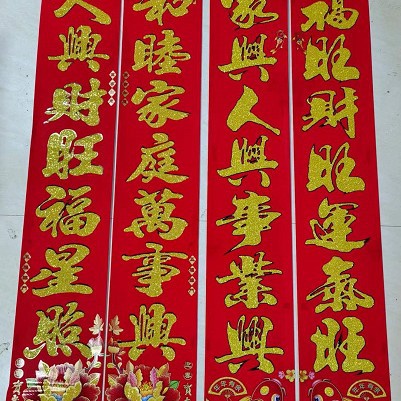 福旺財旺運氣旺
家興人興事業興
和睦家庭萬事興
人興財旺福星照